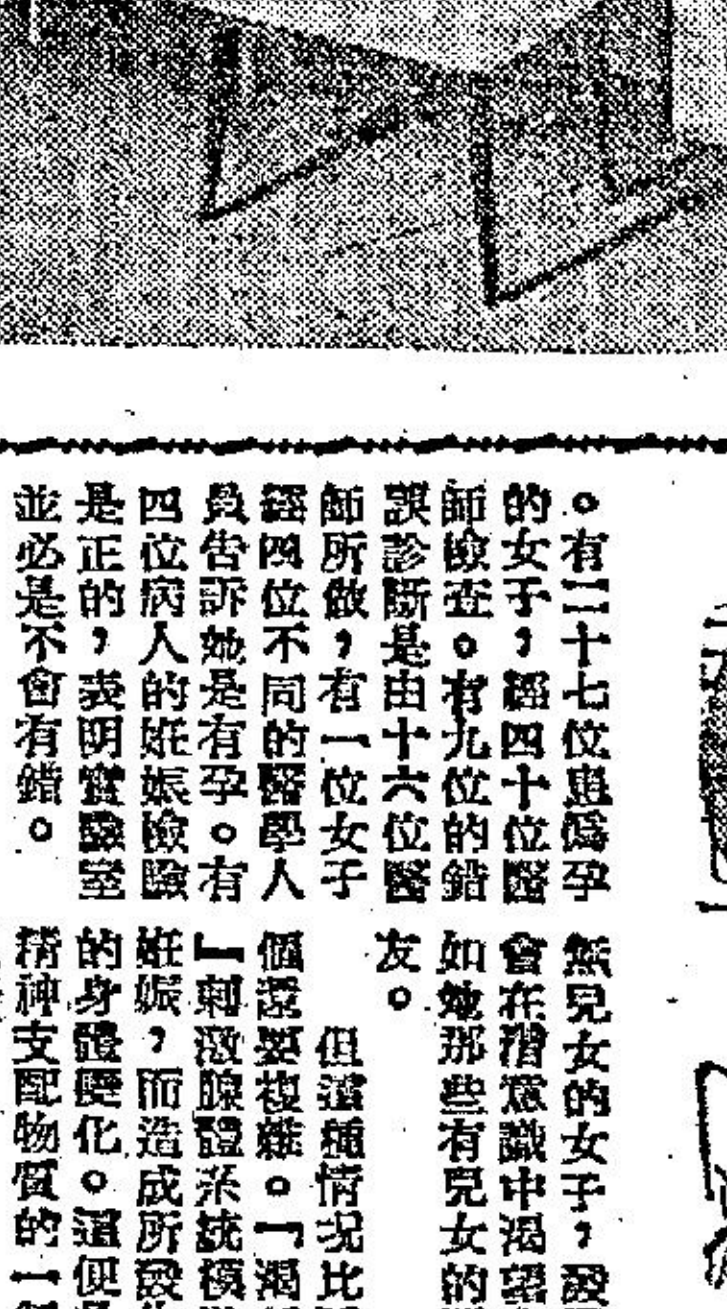 。有二十七位患僞孕
的女子，經四十位醫
師檢查。有九位的錯
誤診斷是由十六位醫
師所做，有一位女子
經四位不同的醫學人
員告訴她是有孕。有
四位病人的姙娠檢驗
是正的，表明實驗室
並必是不會有錯。
無兒女的女子，設
會在潛意識中渴望
如她那些有兒女的
友。
但這種情况比
個還要複雜。「渴
』刺激腺體系統模
姙娠，而造成所設
的身體變化。這便
精神支配物質的一個